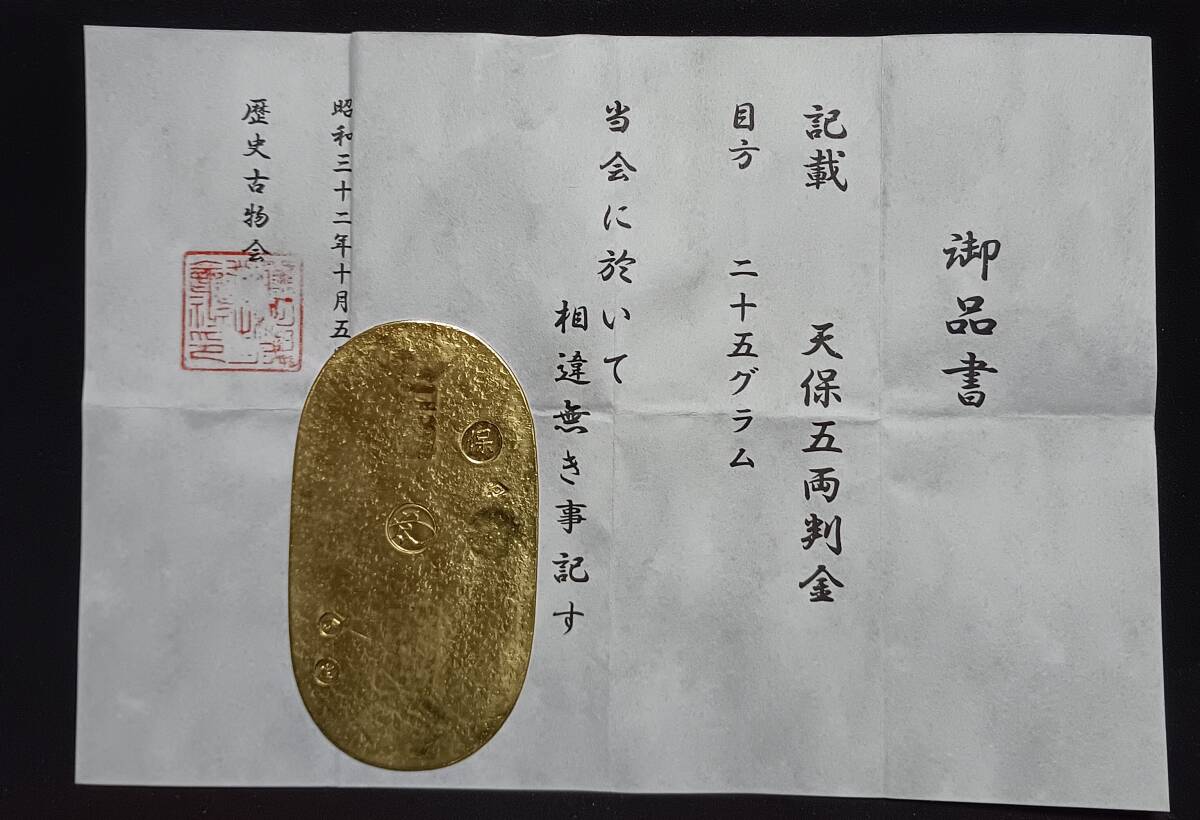 御品書
記載 天保五両判金
目方 二十五グラム
当会に於いて
相違無き事記す
昭和三十二年十月五
歴史古物会
保